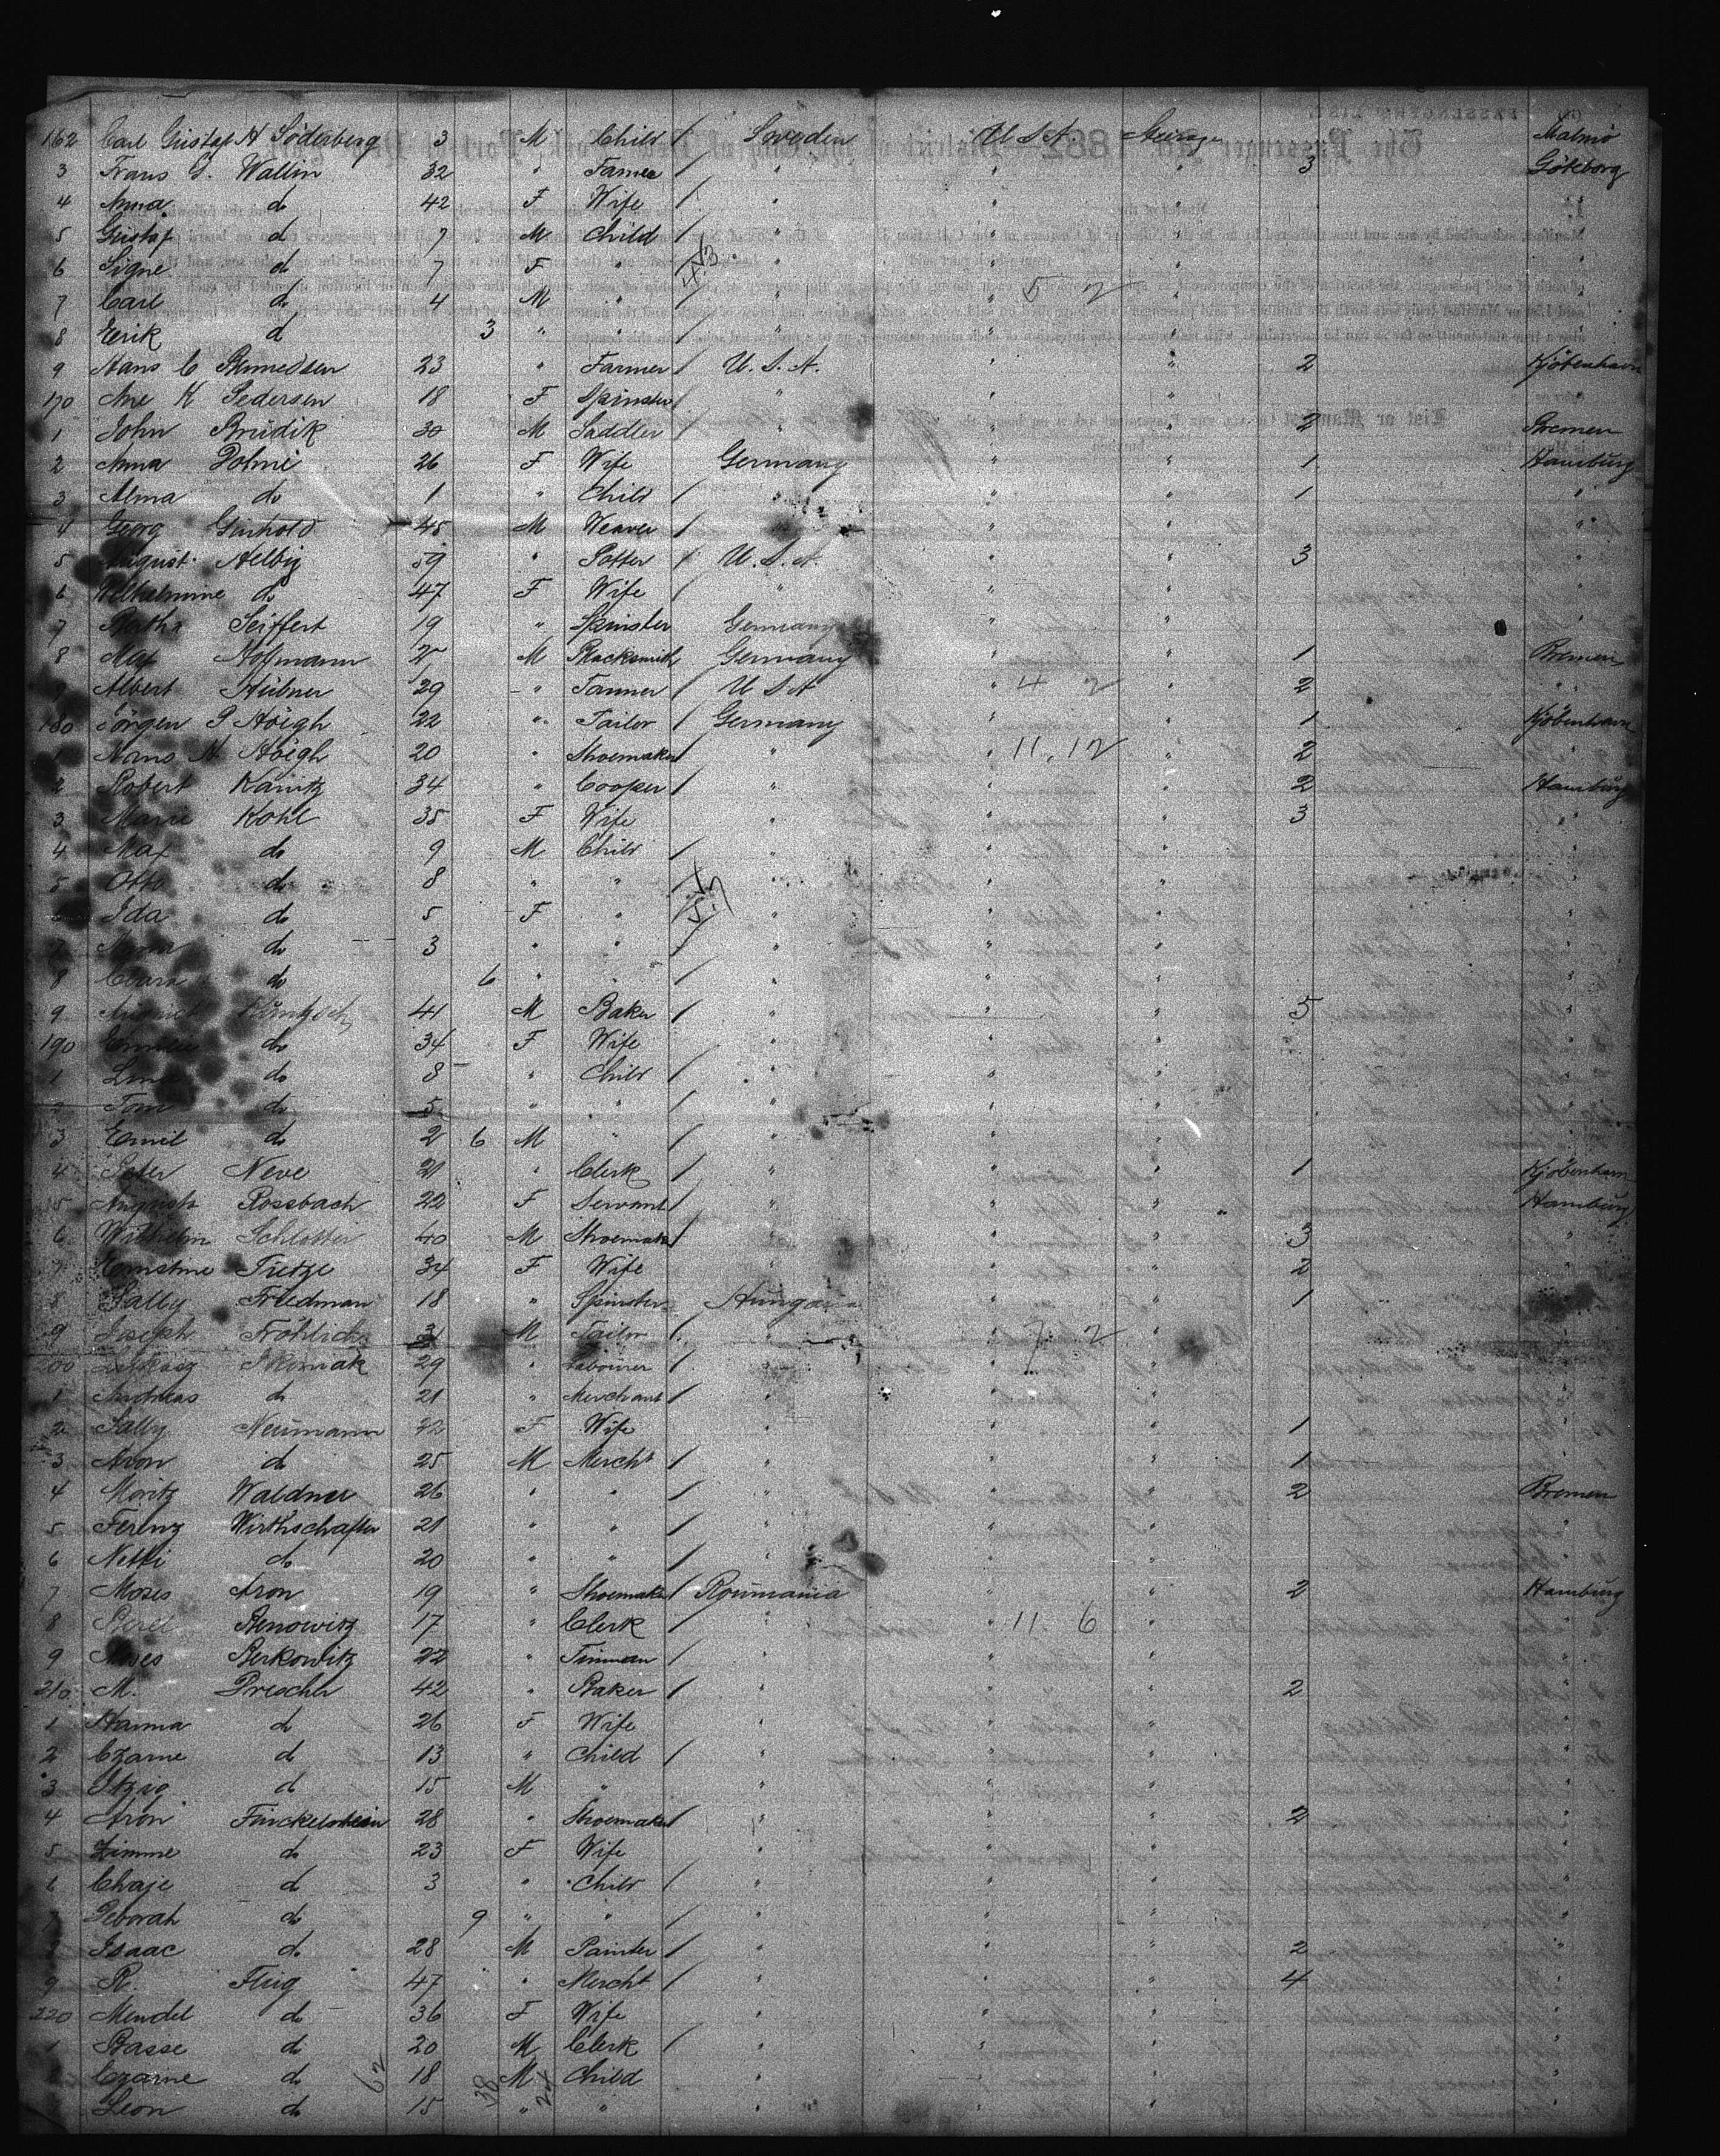 162 Carl Gustaf A Söderberg 3 M Child / Sweden U S A Steerage Malmö
3 Frans G. Wallin 32 " Farmer / " " " 3 Göteborg
4 Anna do 42 F Wife / " " " "
5 Gustaf d 9 M Child / " " " "
6 Signe d 7 F " / " " " "
7 Carl do 4 M " / " " 5 2 " "
8 Erik d 3 " " / " " " "
9 Hans C 23 " Farmer / U. S. A. " " 2 Kjöbenhavn
170 Ane K Pedersen 18 F Spinster / " " " "
1 John 30 M Saddler / " " " 2 Bremen
2 Anna 26 F Wife Germany " " 1 Hamburg
3 Alma do 1 " Child / " " " 1 "
4 Georg 45 M Weaver / " " " "
5 August Helbig 59 " Potter / U. S. A. " " 3 "
6 Wilhelmine do 47 F Wife / " " " "
7 Bertha Seiffert 19 " Spinster Germany " " "
8 Max Hofmann M Blacksmith Germany " " 1 Bremen
9 Albert Hübner 29 " Farmer / U S A " 4 2 " 2 "
180 Jörgen P Höigh 22 " Tailor / Germany " " 1 Kjöbenhavn
1 Hans N Höigh 20 " Shoemaker / " " 11. 12 " 2 "
2 Robert Kanitz 34 " Cooper / " " " 2 Hamburg
3 Marie Kohl 35 F Wife " " " 3 "
4 Max do 9 M Child / " " " "
5 Otto do 8 " " / " " " "
6 Ida do 5 F " / " " " "
7 do 3 " " / " " " "
8 Clara do 6 " " / " " " "
9 August 41 M Baker / " " " 5 "
190 Emilie do 34 F Wife " " " "
1 do 8 " Child / " " " "
2 Toni do 5 " " / " " " "
3 Emil do 2 6 M " / " " " "
4 Peter Neve 21 " Clerk / " " " 1 Kjöbenhavn
5 Augusta Rossbach 22 F Servant / " " " Hamburg
6 Wilhelm 40 M Shoemaker / " " " 3 "
7 Ernstine Tietze 34 F Wife " " " 2 "
8 Sally Friedman 18 " Spinster Hungaria " " 1 "
9 Joseph Fröhlich M Tailor / " " 7 2 " "
200 29 " Labourer / " " " "
1 Andreas do 21 " Merchant / " " " "
2 Sally Neumann 22 F Wife " " " 1 "
3 Aron do 25 M Mercht / " " " 1 "
4 Moritz Waldner 26 " " / " " " 2 Bremen
5 Ferenz Wirthschafter 21 " " / " " " "
6 Netti do 20 " " / " " " "
7 Moses Aron 19 " Shoemaker / Roumania " " 2 Hamburg
8 Benowitz 17 " Clerk / " " 11. 6 " "
9 Moses Berkowitz 22 " Tinman / " " " "
210 M. 42 " Baker / " " " 2 "
1 Hanna d 26 F Wife " " " "
2 Czarne d 13 " Child / " " " "
3 Itzig d 15 M " " " " "
4 Aron Finckelstein 28 " Shoemaker / " " " 2 "
5 Zimme do 23 F Wife " " " "
6 Chaje d 3 " Child / " " " "
7 Deborah do 9 " " / " " " "
8 Isaac do 28 M Painter / " " " 2 "
9 R. Flug 47 " Mercht / " " " 4 "
220 Mendel do 36 F Wife " " " "
1 Basse do 20 M Clerk / " " " "
2 Czarne d 18 M Child " " " "
Leon do 15 " " " " " "
62 38 24